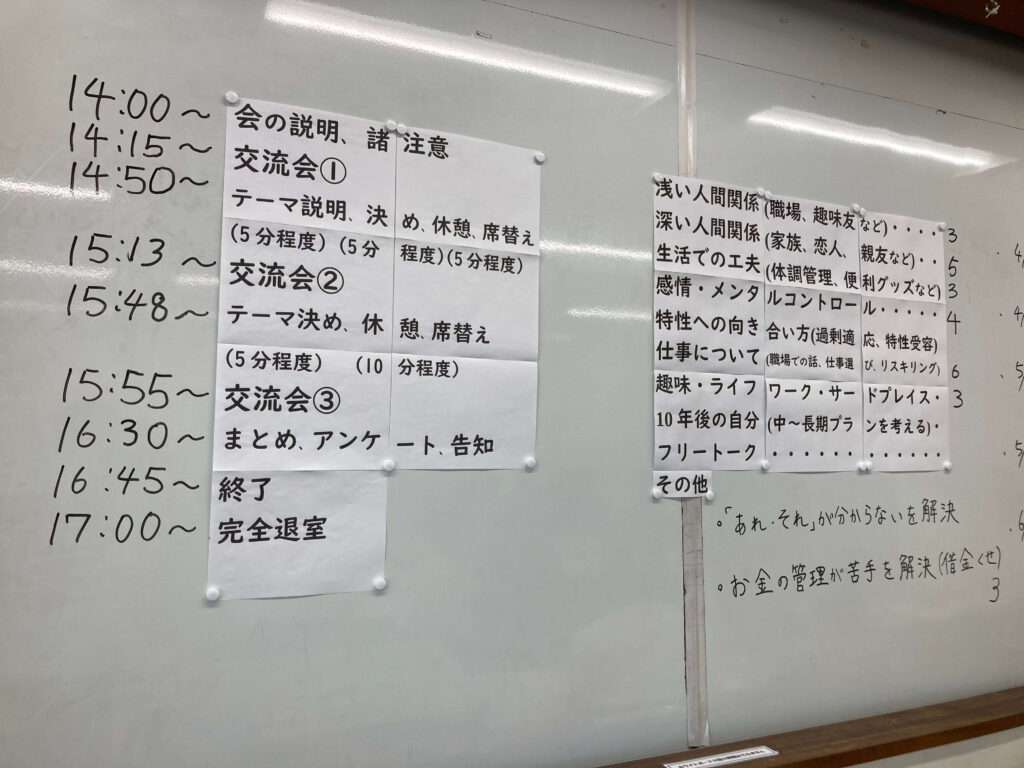 14:00～ 会の説明、諸注意
14:15～ 交流会①
14:50～ テーマ説明、決め、休憩、席替え
(5分程度)(5分程度)(5分程度)
15:13～ 交流会②
15:48～ テーマ決め、休憩、席替え
(5分程度) (10分程度)
15:55～ 交流会③
16:30～ まとめ、アンケート、告知
16:45～ 終了
17:00～ 完全退室
浅い人間関係(職場、趣味友など)・・・・3
深い人間関係(家族、恋人、親友など)・・5
生活での工夫(体調管理、便利グッズなど)3
感情・メンタルコントロール・・・・・4
特性への向き合い方(過剰適応、特性受容)
仕事について(職場での話、仕事選び、リスキリング)6
趣味・ライフワーク・サードプレイス・3
10年後の自分(中～長期プランを考える)・
フリートーク・・・・・・・・・・・・
その他
。「あれ・それ」が分からないを解決
。お金の管理が苦手を解決(借金くせ)
3